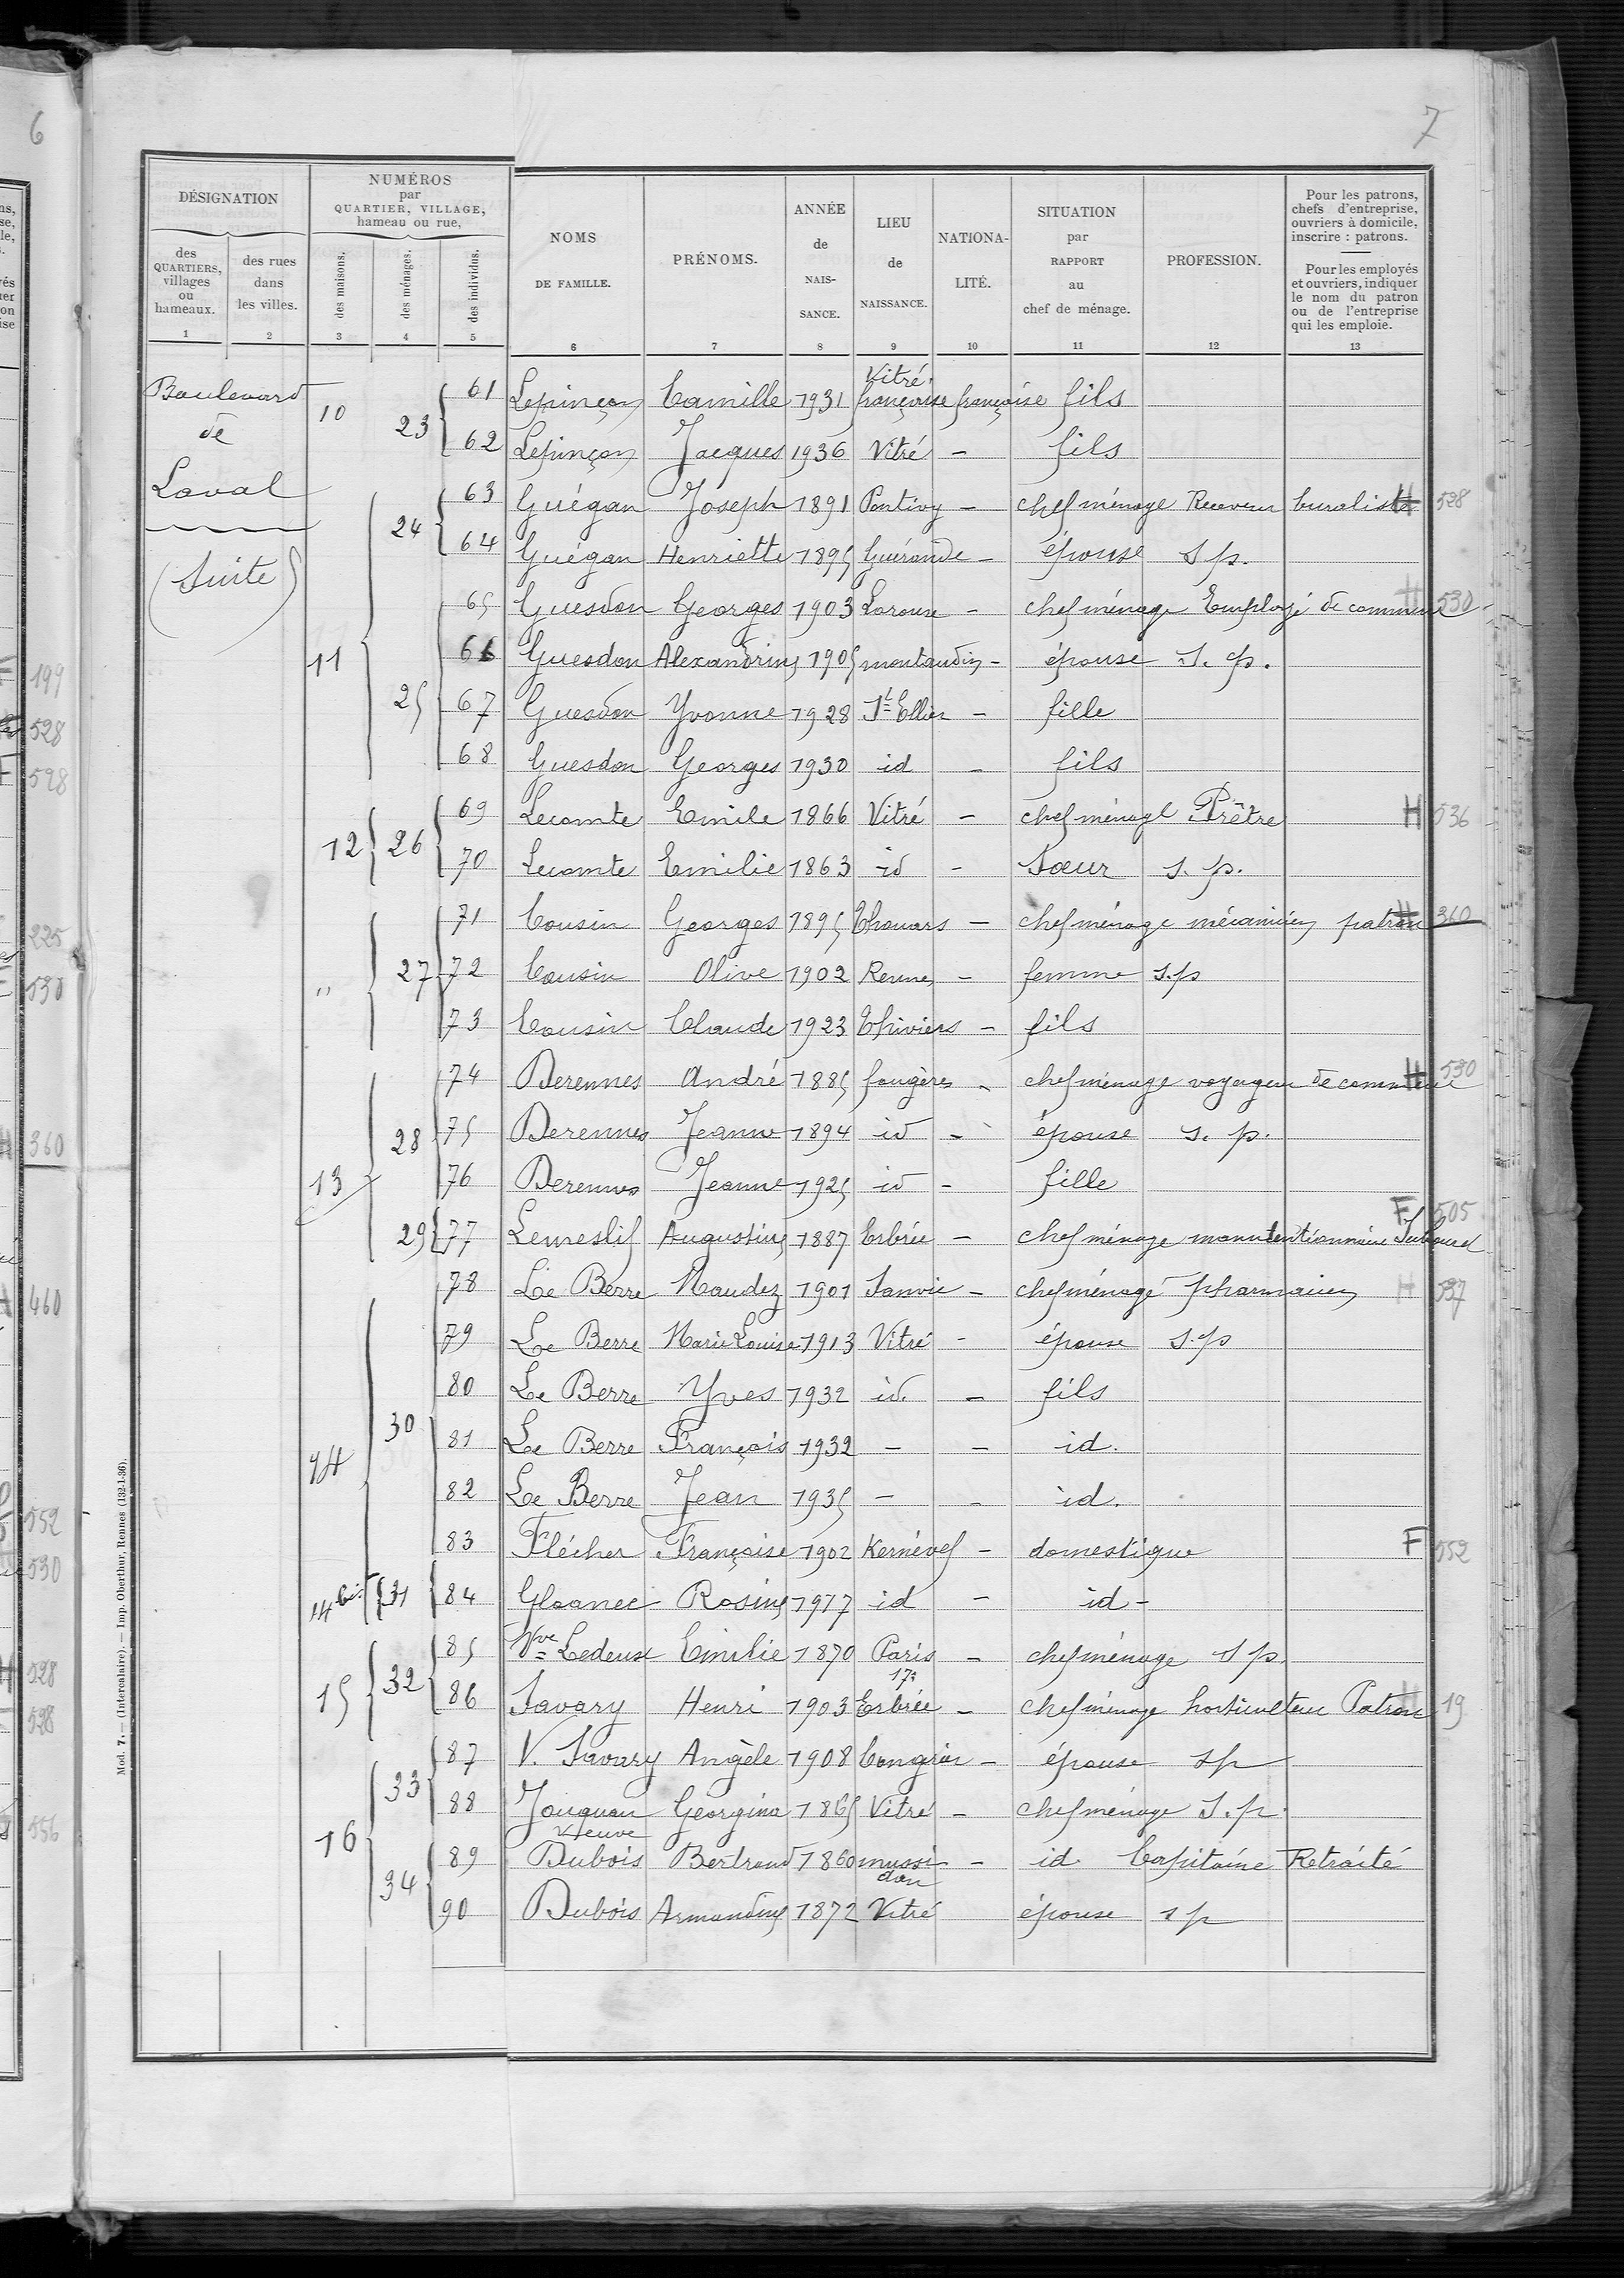 6
7
DÉSIGNATION
NUMÉROS
par
QUARTIER, VILLAGE,
hameau ou rue.
des
QUARTIERS,
villages
ou
hameaux.
des rues
dans
les villes.
des maisons.
des ménages.
des individus.
NOMS
DE FAMILLE.
PRÉNOMS.
ANNÉE
de
NAIS-
SANCE.
LIEU
de
NAISSANCE.
NATIONA-
LITÉ.
SITUATION
par
RAPPORT
au
chef de ménage.
PROFESSION.
Pour les patrons,
chefs d'entreprise,
ouvriers à domicile,
inscrire : patrons.
Pour les employés
et ouvriers, indiquer
le nom du patron
ou de l'entreprise
qui les emploie.
1 2 3 4 5 6 7 8 9 10 11 12 13
Boulevard
de
Laval
(Suite)
10 23 61 Lepinçon Camille 1931 Vitré française française fils
62 Lepinçon Jacques 1936 Vitré - fils
24 63 Guégan Joseph 1891 Pontivy - chef ménage Receveur buraliste H 528
64 Guégan Henriette 1895 Guérande - épouse s.p.
11 25 65 Guesdon Georges 1903 - chef ménage Employé de commerce H 530
66 Guesdon Alexandrine 1905 montaudin - épouse s.p.
67 Guesdon Yvonne 1928 St Ellier - fille
68 Guesdon Georges 1930 id - fils
12 26 69 Lecomte Emile 1866 Vitré - chef ménage Prêtre H 536
70 Lecomte Emilie 1863 id - Soeur s.p.
" 27 71 Cousin Georges 1895 Thouars - chef ménage mécanicien patron H 360
72 Cousin Olive 1902 Rennes - femme s.p
73 Cousin Claude 1923 Thiviers - fils
13 28 74 Derennes André 1885 fougères - chef ménage voyageur de commerce H 530
75 Derennes Jeanne 1894 id - épouse s.p.
76 Derennes Jeanne 1925 id - fille
29 77 Lemeslif Augustine 1887 Erbrée - chef ménage manutentionnaire F 505
14 30 78 Le Berre Maudez 1901 Sanvic - chef ménage pharmacien H 537
79 Le Berre Marie Louise 1913 Vitré - épouse s.p
80 Le Berre Yves 1932 id. - fils
81 Le Berre François 1932 - - id.
82 Le Berre Jean 1935 - - id.
83 Flécher Françoise 1902 Kernével - domestique F 552
14 bis 31 84 Gloanec Rosine 1917 id - id -
15 32 85 Vve Ledeux Emilie 1870 Paris 17e - chef ménage s p.
86 Savary Henri 1903 Erbrée - chef ménage horticulteur Patron H 19
16 33 87 V. Savary Angèle 1908 Congrier - épouse sp
88 Jouquan veuve Georgina 1865 Vitré - chef ménage S.p.
34 89 Dubois Bertrand 1860 mussidan - id. Capitaine Retraité
90 Dubois Armandine 1872 Vitré épouse sp
199
528
598
225
530
360
460
552
530
528
598
556
Mod. 7. — (Intercalaire). — Imp. Oberthur, Rennes (132-1-36).